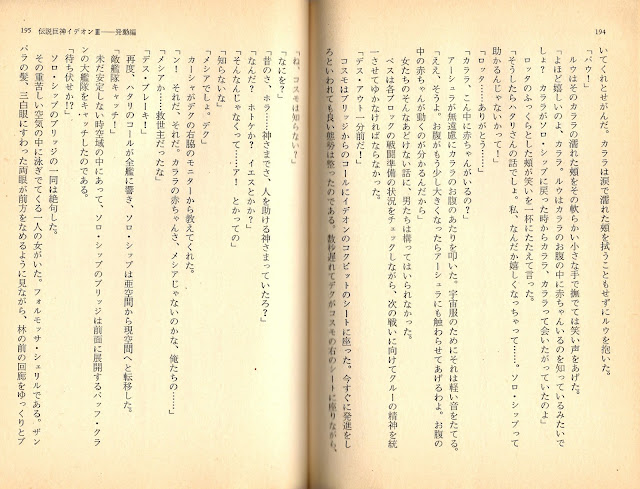 194
いてくれとせがんだ。カララは涙で濡れた頬を拭うこともせずにルウを抱いた。
「バウ！」
ルウはそのカララの濡れた頬をその軟らかい小さな手で撫でては笑い声をあげた。
「よほど嬉しいのよ、カララ。ルウはカララのお腹の中に赤ちゃんいるのを知っているみたいで
しょ？　カララがソロ・シップに戻った時からカララ、カララって会いたがっていたのよ」
ロッタのふっくらとした頬が笑いを一杯にたたえて言った。
「そうしたらハタリさんの話でしょ。私、なんだか嬉しくなっちゃって……。ソロ・シップって
助かるんじゃないかって！」
「ロッタ……ありがとう……」
「カララ、こん中に赤ちゃんがいるの？」
アーシュラが無遠慮にカララのお腹のあたりを叩いた。宇宙服のためにそれは軽い音をたてる。
「ええ、そうよ。お腹がもう少し大きくなったらアーシュラにも触わらせてあげるわよ。お腹の
中の赤ちゃんが動くのが分かるんだから」
女たちのそんなあどけない話に、男たちは構ってはいられなかった。
ベスは各ブロックの戦闘準備の状況をチェックしながら、次の戦いに向けてクルーの精神を統
一させてゆかなければならなかった。
「デス・アウト一分前だ！」
コスモはブリッジからのコールにイデオンのコクピットのシートに座った。今すぐに発進をし
ろといわれても良い態勢は整ったのである。数秒遅れてデクがコスモの右のシートに座りながら、
195　伝説巨神イデオンⅢ——発動編
「ね、コスモは知らない？」
「なにを？」
「昔のさ、ホラ……神さまでさ、人を助ける神さまっていたろ？」
「なんだ？　ホトケか？　イエスとかか？」
「そんなんじゃなくって……ア！　とかっての」
「知らないな」
「メシアでしょ。デク」
カーシャがデクの右脇のモニターから教えてくれた。
「ン！　それだ、それだ。カララの赤ちゃんさ、メシアじゃないのかな、俺たちの……」
「メシアか……救世主だったな」
「デス・ブレーキ！」
再度、ハタリのコールが全艦に響き、ソロ・シップは亜空間から現空間へと転移した。
「敵艦隊キャッチ！」
未だ安定しない時空域の中にあって、ソロ・シップのブリッジは前面に展開するバッフ・クラ
ンの大艦隊をキャッチしたのである。
「待ち伏せか!?」
ソロ・シップのブリッジの一同は絶句した。
その重苦しい空気の中に泳ぎでてくる一人の女がいた。フォルモッサ・シェリルである。ザン
バラの髪、三白眼にすわった両眼が前方をなめるように見ながら、林の前の回廊をゆっくりとブ